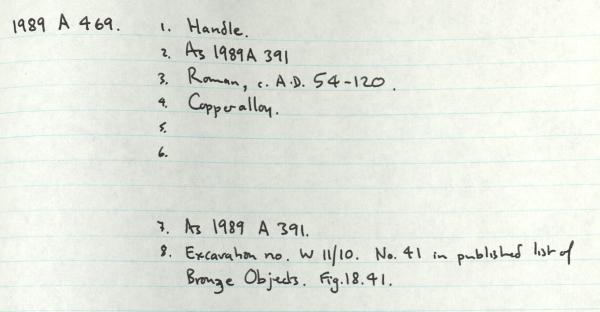 1989 A 469. 1. Handle.
2. As 1989A 391
3. Roman, c. A.D. 54-120.
4. Copper alloy.
5.
6.
7. As 1989 A 391.
8. Excavation no. W 11/10. No. 41 in published list of
Bronze Objects. Fig.18.41.